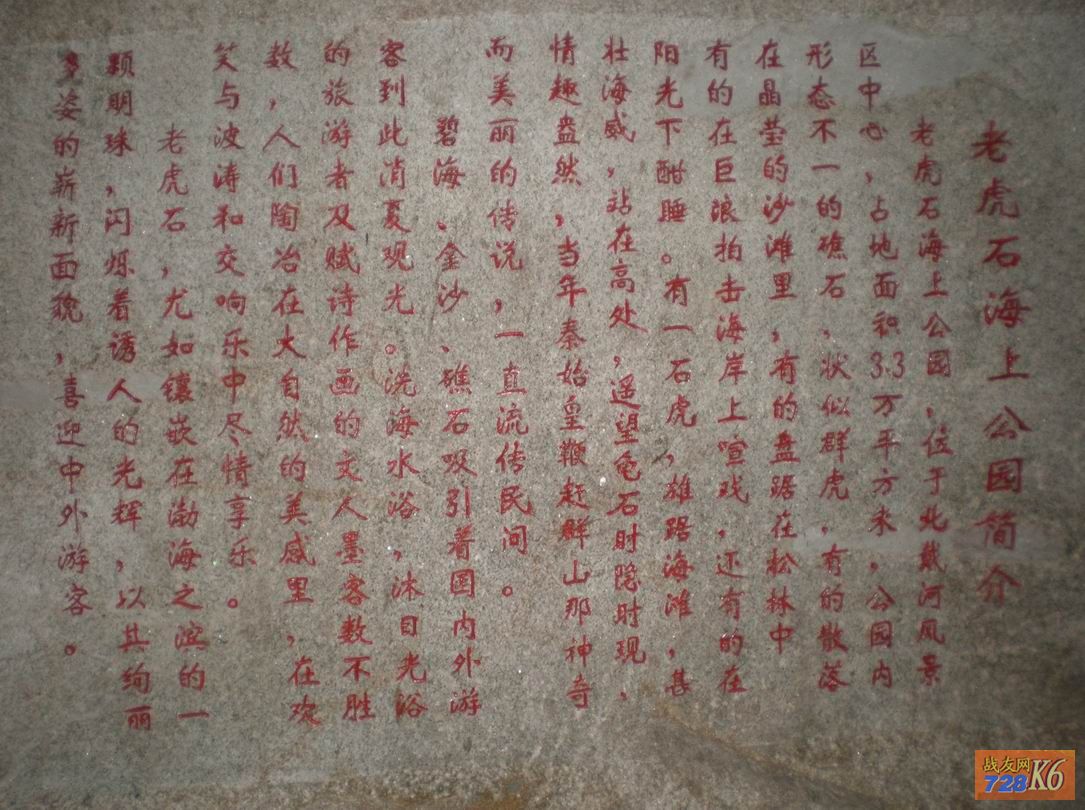 老虎石海上公园简介
老虎石海上公园,位于北戴河风景
区中心,占地面积3.3万平方米,公园内
形态不一的礁石、状似群虎,有的散落
在晶莹的沙滩里,有的盘踞在松林中
有的在巨浪拍击海岸上喧戏,还有的在
阳光下酣睡。有一石虎,雄踞海滩,甚
壮海威,站在高处,遥望龟石时隐时现,
情趣盎然,当年秦始皇鞭赶群山那神奇
而美丽的传说,一直流传民间。
碧海、金沙、礁石吸引着国内外游
客到此消夏观光。洗海水浴,沐日光浴
的旅游者及赋诗作画的文人墨客数不胜
数,人们陶冶在大自然的美感里,在欢
笑与波涛和交响乐中尽情享乐。
老虎石,尤如镶嵌在渤海之滨的一
颗明珠,闪烁着诱人的光辉,以其绚丽
多姿的崭新面貌,喜迎中外游客。
战友网
728K6